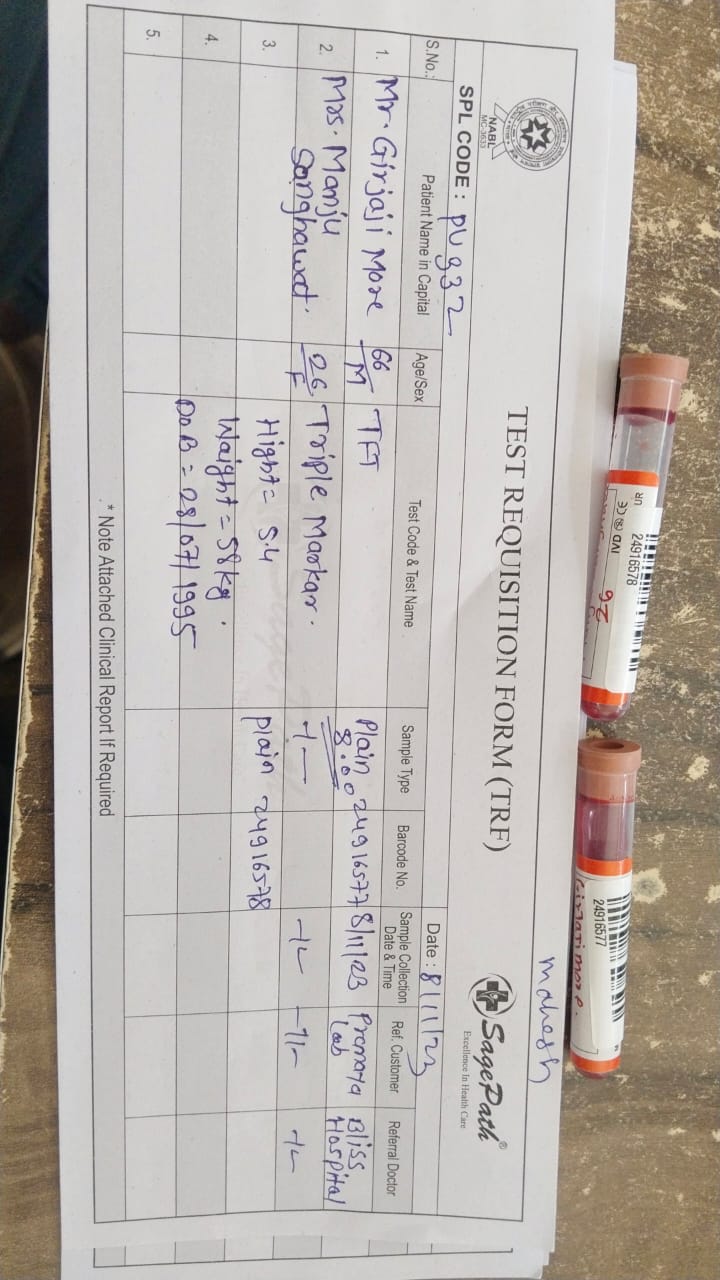 mahesh
NABL
MC-3633
TEST REQUISITION FORM (TRF)
SagePath®
Excellence In Health Care
SPL CODE : PU932
Date : 8/11/23
S.No.: Patient Name in Capital Age/Sex Test Code & Test Name Sample Type Barcode No. Sample Collection Date & Time Ref. Customer Referral Doctor
1. Mr. Girjaji More 66/M TFT Plain 8:00 24916577 8/11/23 Lab Bliss Hospital
2. Mrs. Manju Sanghawat. 26/F Triple Markar.
3. Hight = 5.4 plain 24916578
4. Waight = 58kg.
DOB = 28/07/1995
5.
* Note Attached Clinical Report If Required
24916578
26
24916577
Girjaji more.